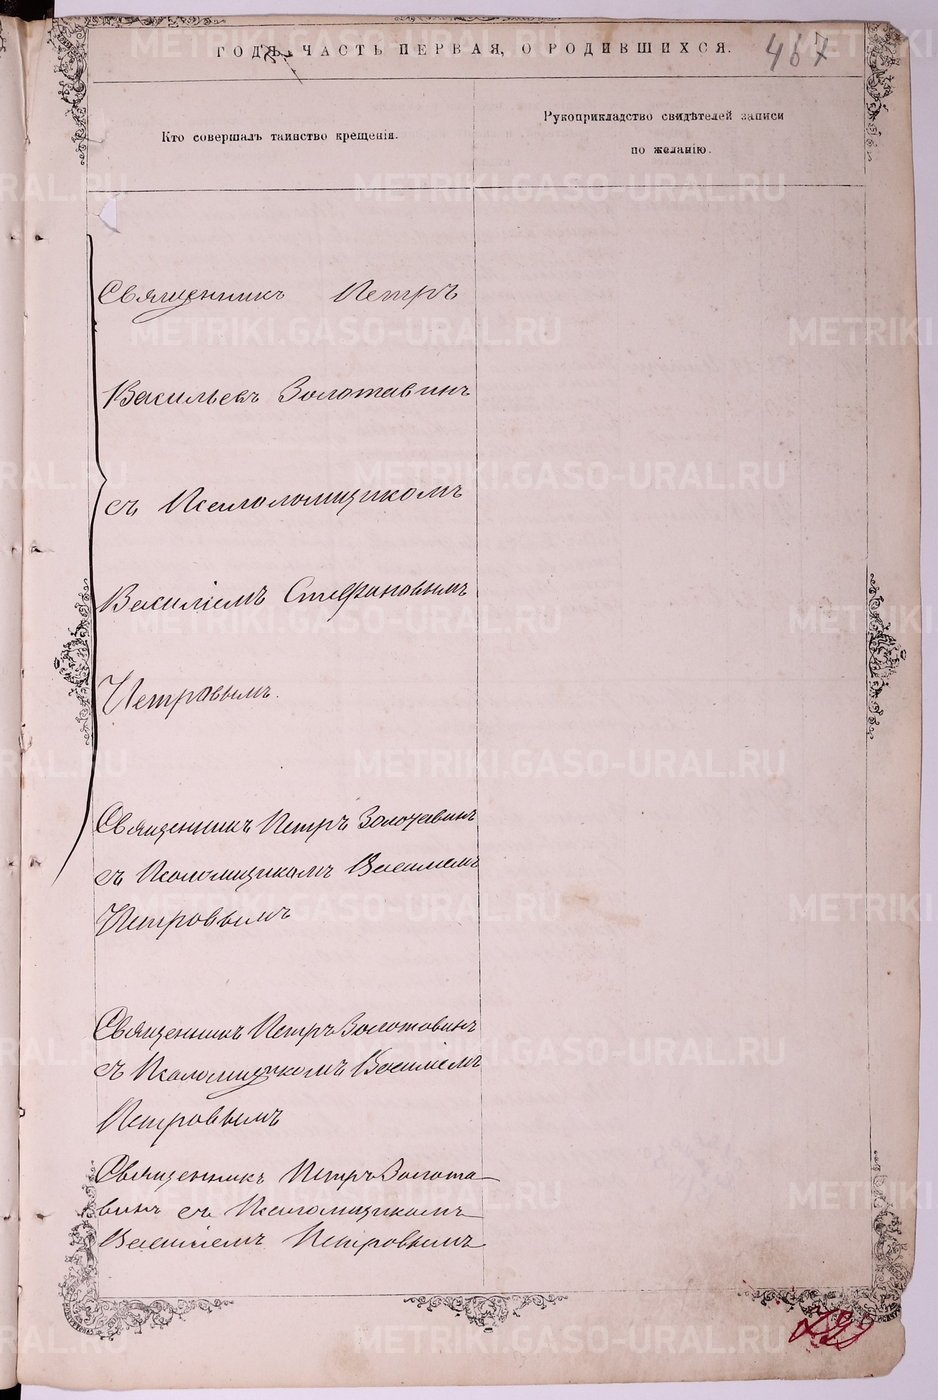 ГОДЪ. ЧАСТЬ ПЕРВАЯ, О РОДИВШИХСЯ.
467
Кто совершалъ таинство крещенія.
Рукоприкладство свидѣтелей записи
по желанію.
Священникъ Петръ
Васильевъ Золотавинъ
съ Псаломщикомъ
Василіемъ Стефановымъ
Петровымъ.
Священникъ Петръ Золотавинъ
съ Псаломщикомъ Василіемъ
Петровымъ
Священникъ Петръ Золотовинъ
съ Псаломщикомъ Василіемъ
Петровымъ
Священникъ Петръ Золота-
винъ съ Псаломщикомъ
Василіемъ Петровымъ
METRIKI.GASO-URAL.RU